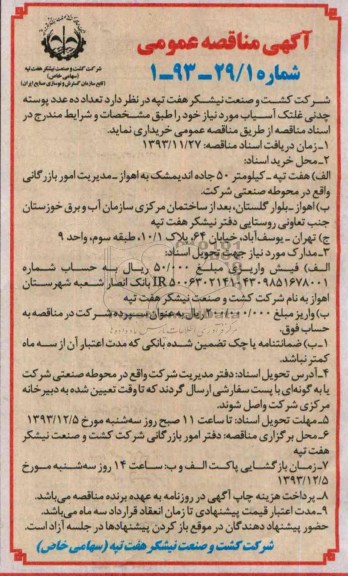 آگهی مناقصه عمومی
شماره ۲۹/۱-۹۳-۱
شرکت کشت و صنعت نیشکر هفت تپه
(سهامی خاص)
(تابع سازمان گسترش و نوسازی صنایع ایران)
شرکت کشت و صنعت نیشکر هفت تپه در نظر دارد تعداد ده عدد پوسته
چدنی غلتک آسیاب مورد نیاز خود را طبق مشخصات و شرایط مندرج در
اسناد مناقصه از طریق مناقصه عمومی خریداری نماید.
۱-زمان دریافت اسناد مناقصه: ۱۳۹۳/۱۱/۲۷
۲-محل خرید اسناد:
الف) هفت تپه - کیلومتر ۵۰ جاده اندیمشک به اهواز - مدیریت امور بازرگانی
واقع در محوطه صنعتی شرکت.
ب) اهواز - بلوار گلستان، بعد از ساختمان مرکزی سازمان آب و برق خوزستان
جنب تعاونی روستایی دفتر نیشکر هفت تپه
ج) تهران - یوسف‌آباد، خیابان ۶۴، پلاک ۱۰/۱، طبقه سوم، واحد ۹
۳-مدارک مورد نیاز جهت تحویل اسناد:
الف) فیش واریزی مبلغ ۵۰۰/۰۰۰ ریال به حساب شماره
بانک انصار شعبه شهرستان
اهواز به نام شرکت کشت و صنعت نیشکر هفت تپه
ب) واریز مبلغ ریال به عنوان سپرده شرکت در مناقصه به
حساب فوق.
۱-ب) ضمانتنامه یا چک تضمین شده بانکی که مدت اعتبار آن از سه ماه
کمتر نباشد.
۴-آدرس تحویل اسناد: دفتر مدیریت شرکت واقع در محوطه صنعتی شرکت
یا به گونه‌ای با پست سفارشی ارسال گردند که تا وقت تعیین شده به دبیرخانه
مرکزی شرکت واصل شوند.
۵-مهلت تحویل اسناد: تا ساعت ۱۱ صبح روز سه‌شنبه مورخ ۱۳۹۳/۱۲/۵
۶-محل برگزاری مناقصه: دفتر امور بازرگانی شرکت کشت و صنعت نیشکر
هفت تپه
۷-زمان بازگشایی پاکت الف و ب: ساعت ۱۴ روز سه‌شنبه مورخ
۱۳۹۳/۱۲/۵
۸-پرداخت هزینه چاپ آگهی در روزنامه به عهده برنده مناقصه می‌باشد.
۹-مدت اعتبار قیمت پیشنهادی تا زمان انعقاد قرارداد سه ماه می‌باشد.
حضور پیشنهاد دهندگان در موقع باز کردن پیشنهادها در جلسه آزاد است.
شرکت کشت و صنعت نیشکر هفت تپه (سهامی خاص)